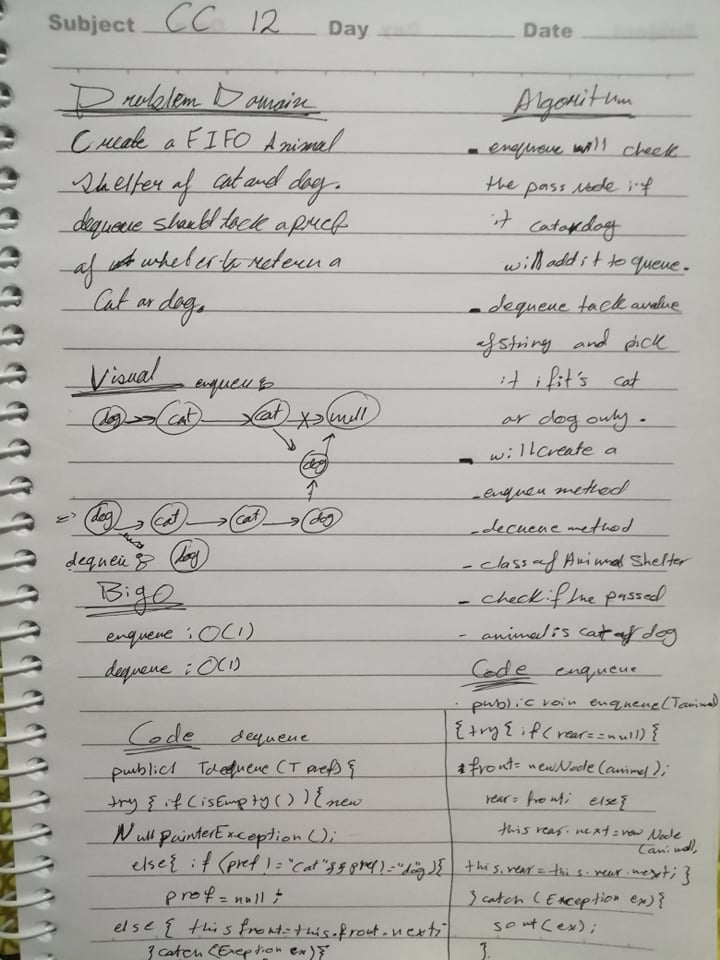 Subject CC 12 Day Date
Problem Domain
Create a FIFO Animal
Shelter of cat and dog.
dequeue should tack a pref
of wheter to retern a
Cat or dog.
Visual enqueue
dog cat cat null
dog
=> dog cat cat dog
dequeue dog
Big O
enqueue : O(1)
dequeue : O(1)
Code dequeue
public T dequeue (T pref) {
try { if (isEmpty()) { new
NullpointerException();
else{ if (pref != "cat" && pref != "dog"){
pref = null ;
else { this front=this.front.next;
} catch (Exeption ex) {
Algoritum
- enqueue will check
the pass node if
it cat or dog
will add it to queue.
- dequeue tack a value
of string and pick
it if it's cat
or dog only.
- will create a
- enqueu method
- decuene method
- class of Animal Shelter
- check if the passed
- animal is cat of dog
Code enqueue
. public voin enqueue(T animal)
{ try { if (rear==null) {
front= newNode(animal);
rear= front; else{
this rear.next=new Node
(animal,
this.rear=this.rear.next; }
} catch (Exception ex) {
sout(ex);
}